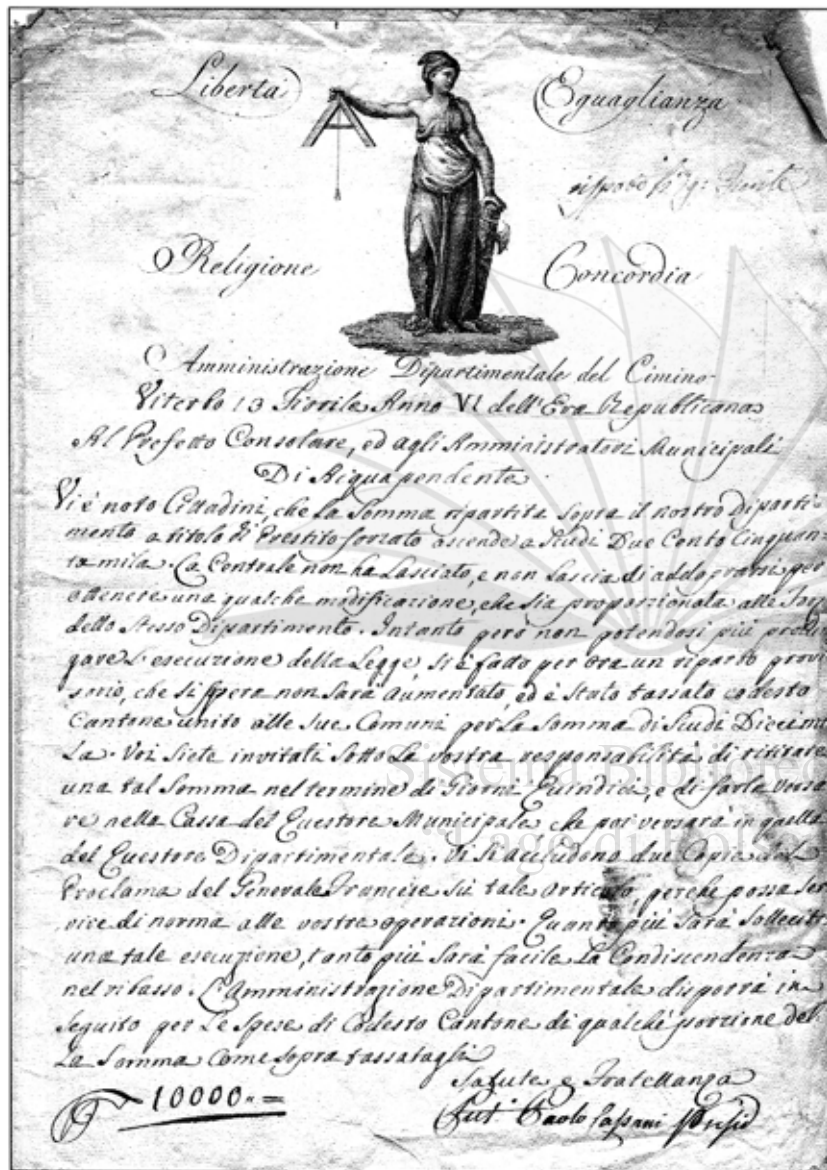 Libertà Eguaglianza
Religione Concordia
Amministrazione Dipartimentale del Cimino
Viterbo 13 Fiorile Anno VI dell'Era Republicana
Al Prefetto Consolare, ed agli Amministratori Municipali
Di Acquapendente
Vi è noto Cittadini, che la Somma ripartita sopra il nostro Diparti-
mento a titolo di Prestito forzato ascende a Scudi Due Cento Cinquan-
ta mila. La Centrale non ha lasciato, e non lascia di adoprarsi per
ottenere una qualche modificazione, che sia proporzionata alle
dello stesso Dipartimento. Intanto però non potendosi più
gare l'esecuzione della Legge si è fatto per ora un riparto provi
sorio, che si spera non sarà aumentato, ed è stato tassato codesto
Cantone unito alle sue Comuni per la somma di Scudi Diecimi
la. Voi siete invitati sotto la vostra responsabilità di ritirare
una tal somma nel termine di Giorni Quindici, e di farla versa
re nella Cassa del Questore Municipale che poi versarà in quella
del Questore Dipartimentale. Vi si accludono due Copie del
Proclama del Generale Francese su tale articolo, perchè possa ser
vire di norma alle vostre operazioni. Quanto più sarà sollecita
una tale esecuzione, tanto più sarà facile la Condiscendenza
nel ribasso. L'Amministrazione Dipartimentale disporrà in
seguito per le spese di Codesto Cantone di qualche porzione del
la Somma come sopra tassatagli
Salute e Fratellanza
10000
Paolo
Sistema Bibliotec
"Lago di Bolse